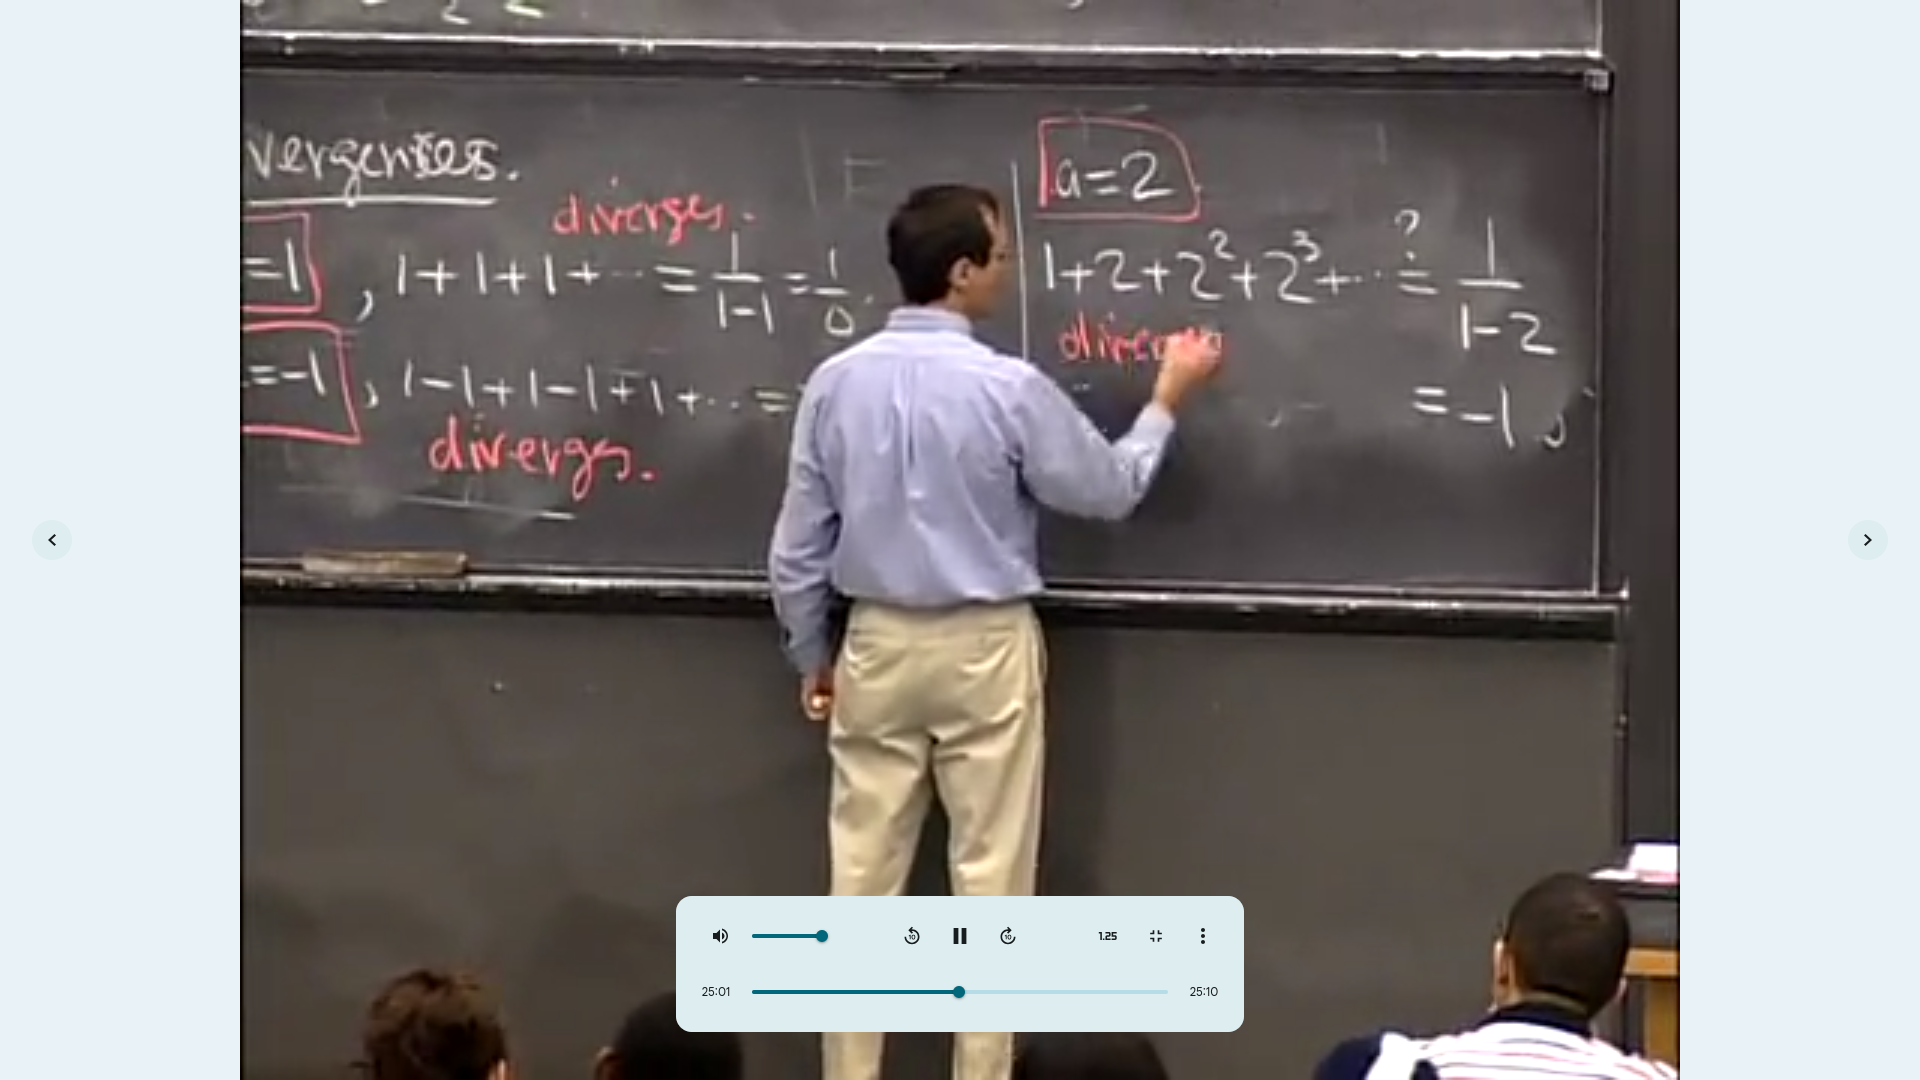 vergences.
diverges.
=1, 1+1+1+... = 1/(1-1) = 1/0.
=-1, 1-1+1-1+1+... =
diverges.
a=2
1+2+2²+2³+... ?= 1/(1-2)
= -1
1.25
25:01
25:10